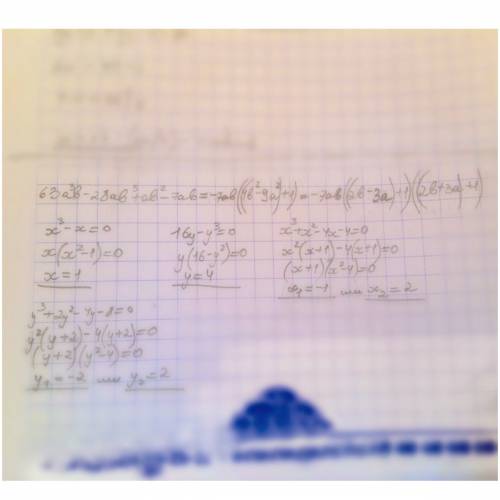 63a³b-28ab³+ab²-7ab=-7ab((4b²-9a²)+1)=-7ab((2b-3a)+1)((2b+3a)+1)
x³-x=0
x(x²-1)=0
x=1
16y-y³=0
y(16-y²)=0
y=4
x³+x²-4x-4=0
x²(x+1)-4(x+1)=0
(x+1)(x²-4)=0
x₁=-1 или x₂=2
y³+2y²-4y-8=0
y²(y+2)-4(y+2)=0
(y+2)(y²-4)=0
y₁=-2 или y₂=2